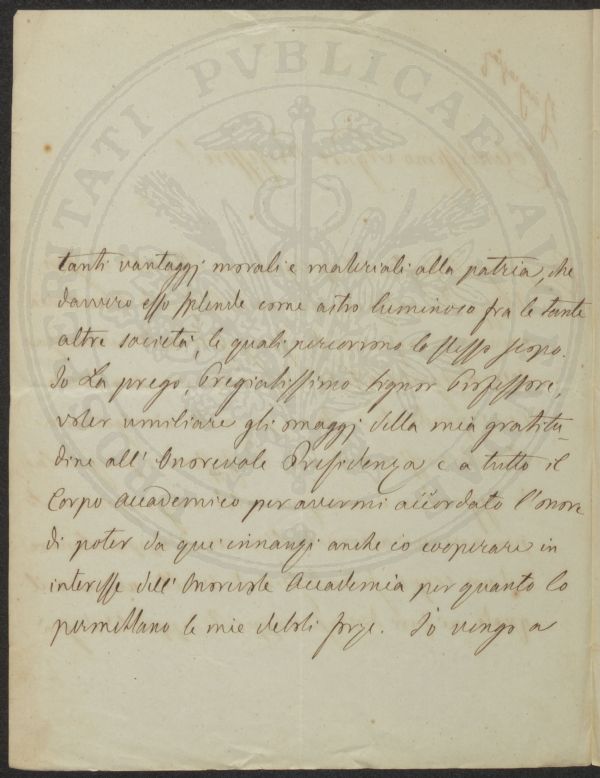 PROSPERITATI PVBLICAE AV
tanti vantaggj morali e materiali alla patria, che
davvero esso splende come astro luminoso fra le tante
altre società, le quali percorrono lo stesso scopo.
Io La prego, Pregiatissimo Signor Professore,
voler umiliare gli omaggj della mia gratitu-
dine all' Onorevole Presidenza e a tutto il
Corpo Accademico per avermi accordato l'onore
di poter da qui innanzi anche io cooperare in
interesse dell' Onorevole Accademia per quanto lo
permettano le mie deboli forze. Io vengo a